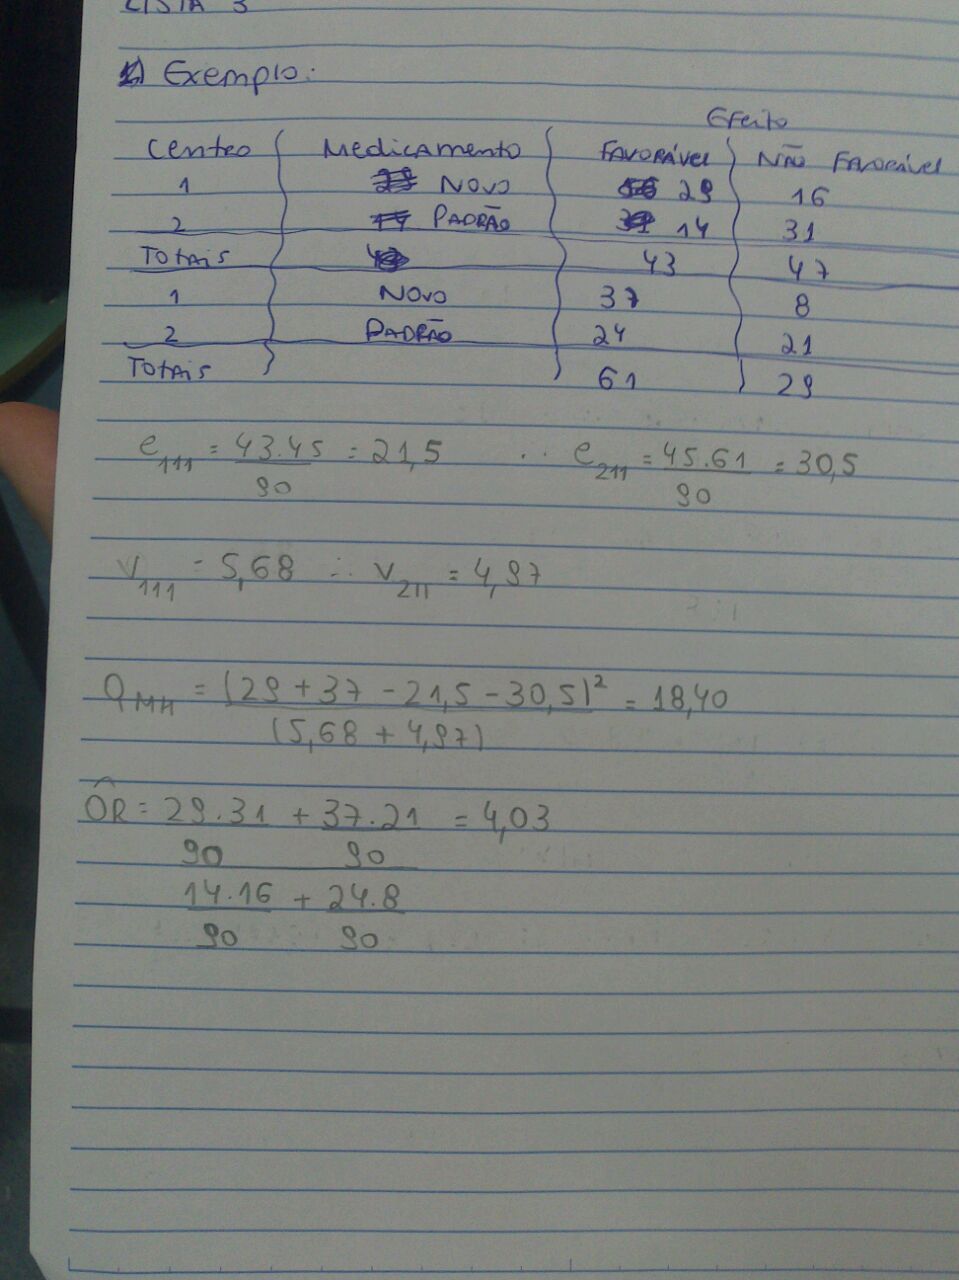 LISTA 3
1) Exemplo:
Efeito
Centro Medicamento Favorável Não Favorável
1 Novo 29 16
2 Padrão 14 31
Totais 43 47
1 Novo 37 8
2 Padrão 24 21
Totais 61 29
e111 = 43.45/90 = 21,5 ∴ e211 = 45.61/90 = 30,5
V111 = 5,68 ∴ V211 = 4,97
QMH = (29 + 37 - 21,5 - 30,5)²/(5,68 + 4,97) = 18,40
ÔR = 29.31 + 37.21 = 4,03
90 90
14.16 + 24.8
90 90